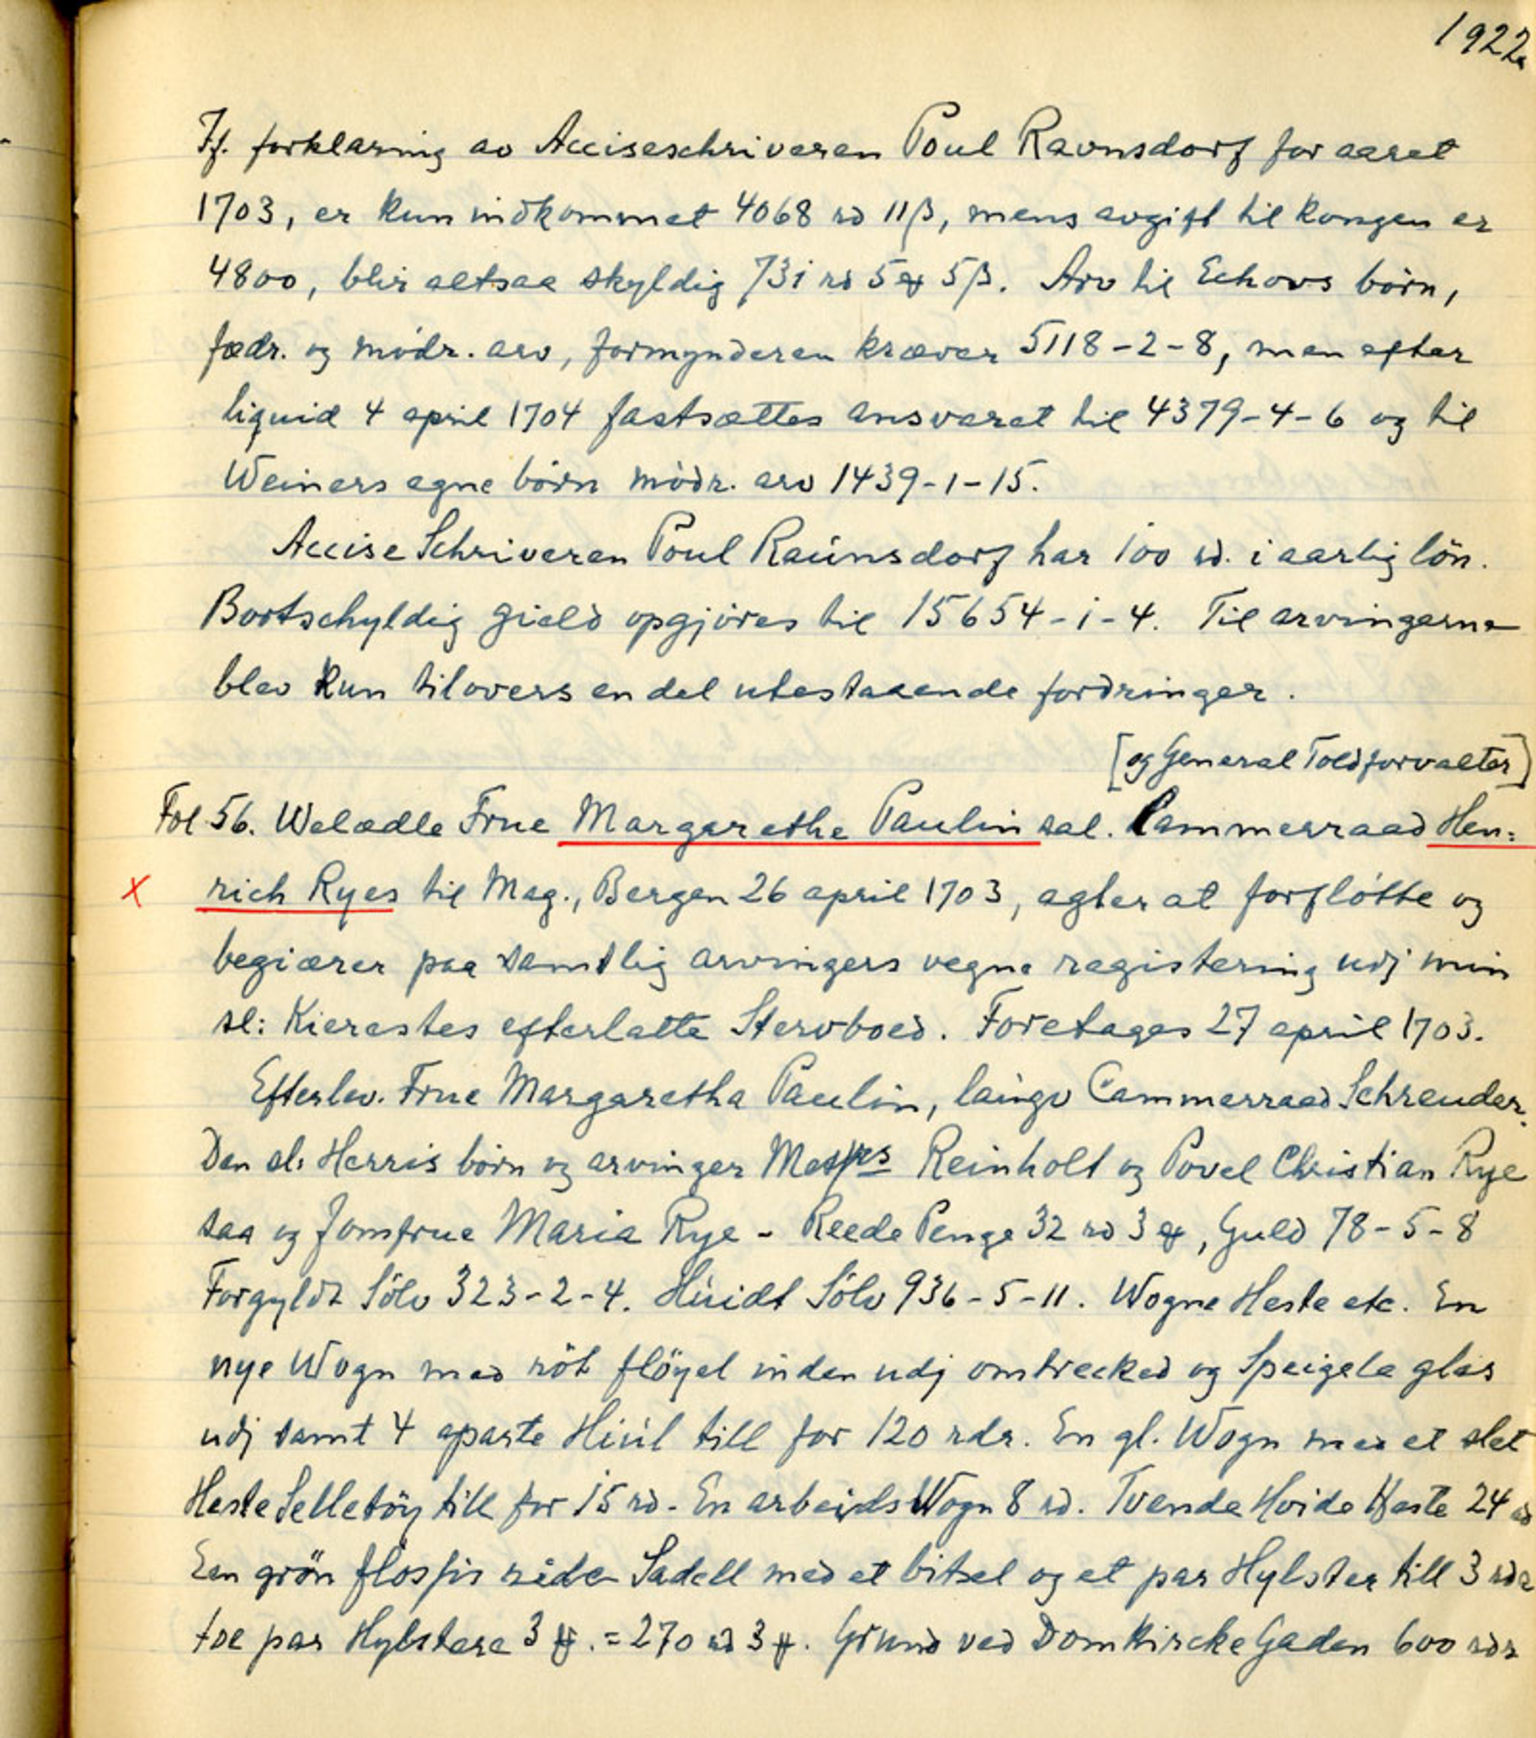 1922a
If. forklaring av Acciseschriveren Poul Ravnsdorf for aaret
1703, er kun indkommet 4068 rd 11β, mens avgift til kongen er
4800, blir altsaa skyldig 731 rd 5 ꝗ 5β. Arv til Echovs børn,
fædr. og mødr. arv, formynderen kræver 5118-2-8, men efter
liquid 4 april 1704 fastsættes ansvaret til 4379-4-6 og til
Weiners egne børn mødr. arv 1439-1-15.
Accise Schriveren Poul Raúnsdorf har 100 rd. i aarlig lön.
Bortschyldig gield opgjöres til 15654-1-4. Til arvingerne
blev kun tilovers en del utestaaende fordringer.
[og General Toldforvalter]
Fol 56. Welædle Frue Margarethe Paulin sal. Cammerraad Hen=
x rich Ryes til Mag., Bergen 26 april 1703, agter at forflötte og
begiærer paa samtlig arvingers vegne registering udj min
sl: Kierestes efterlatte Stervboed. Foretages 27 april 1703.
Efterlev. Frue Margaretha Paulin, laugv Cammerraad Schreuder.
Den sl: Herris börn og arvinger Reinholt og Povel Christian Rye
saa og Jomfrue Maria Rye - Reede Penge 32 rd 3 ꝗ, Guld 78-5-8
Forgyldt Sölv 323-2-4. Húidt Sölv 936-5-11. Wogne Heste etc. En
nye Wogn med röt flöyel inden udj omtrecked og Speigele glas
udj samt 4 aparte Hiúl till for 120 rdr. En gl. Wogn med et slet
Heste Selletöy till for 15 rd. En arbeids Wogn 8 rd. Tvende Hvide Heste 24 rd
Een grön ride Sadell med et bitsel og et par Hylster till 3 rdr
toe par Hylstere 3 ꝗ. = 270 rd 3 ꝗ. Grund ved Domkircke Gaden 600 rdr